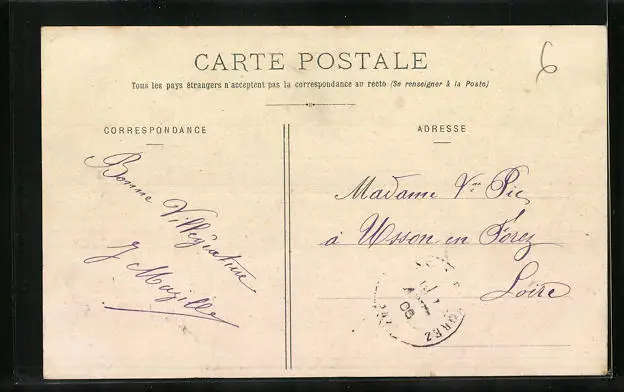 6
CARTE POSTALE
Tous les pays étrangers n'acceptent pas la correspondance au recto (Se renseigner à la Poste)
CORRESPONDANCE
Bonne
Villégiature
J Mazille
ADRESSE
Madame Vve Pic
à Usson en Forez
Loire
OREZ
06